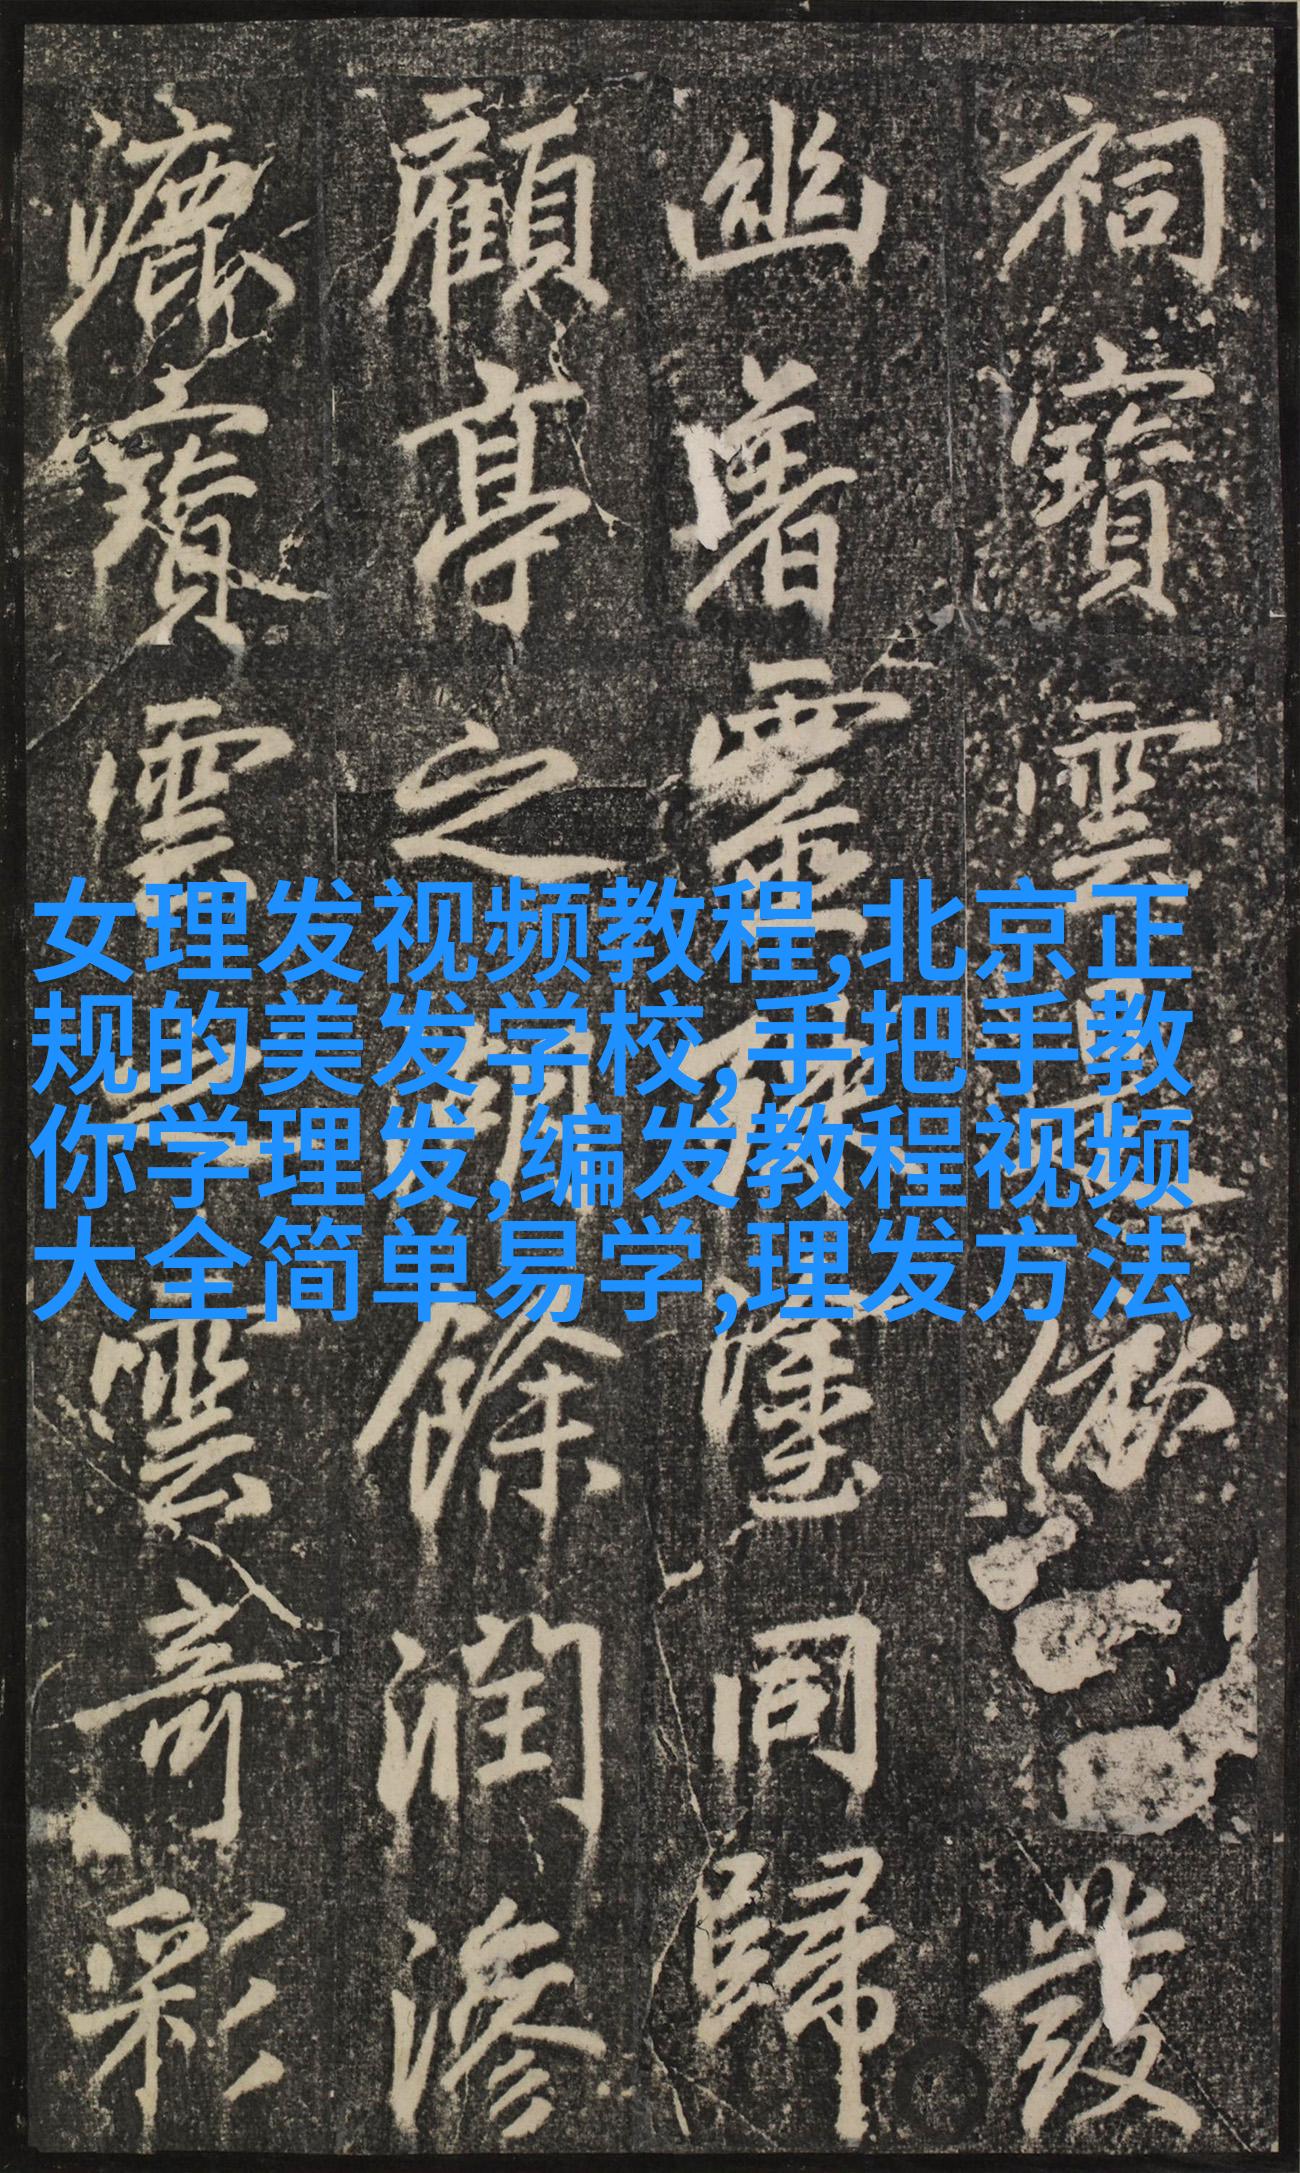 祠寶雲發
幽署靈同歸
顧亭之餘潤滲
漉寶雲雲奇彩
女理发视频教程,北京正
规的美发学校,手把手教
你学理发,编发教程视频
大全简单易学,理发方法